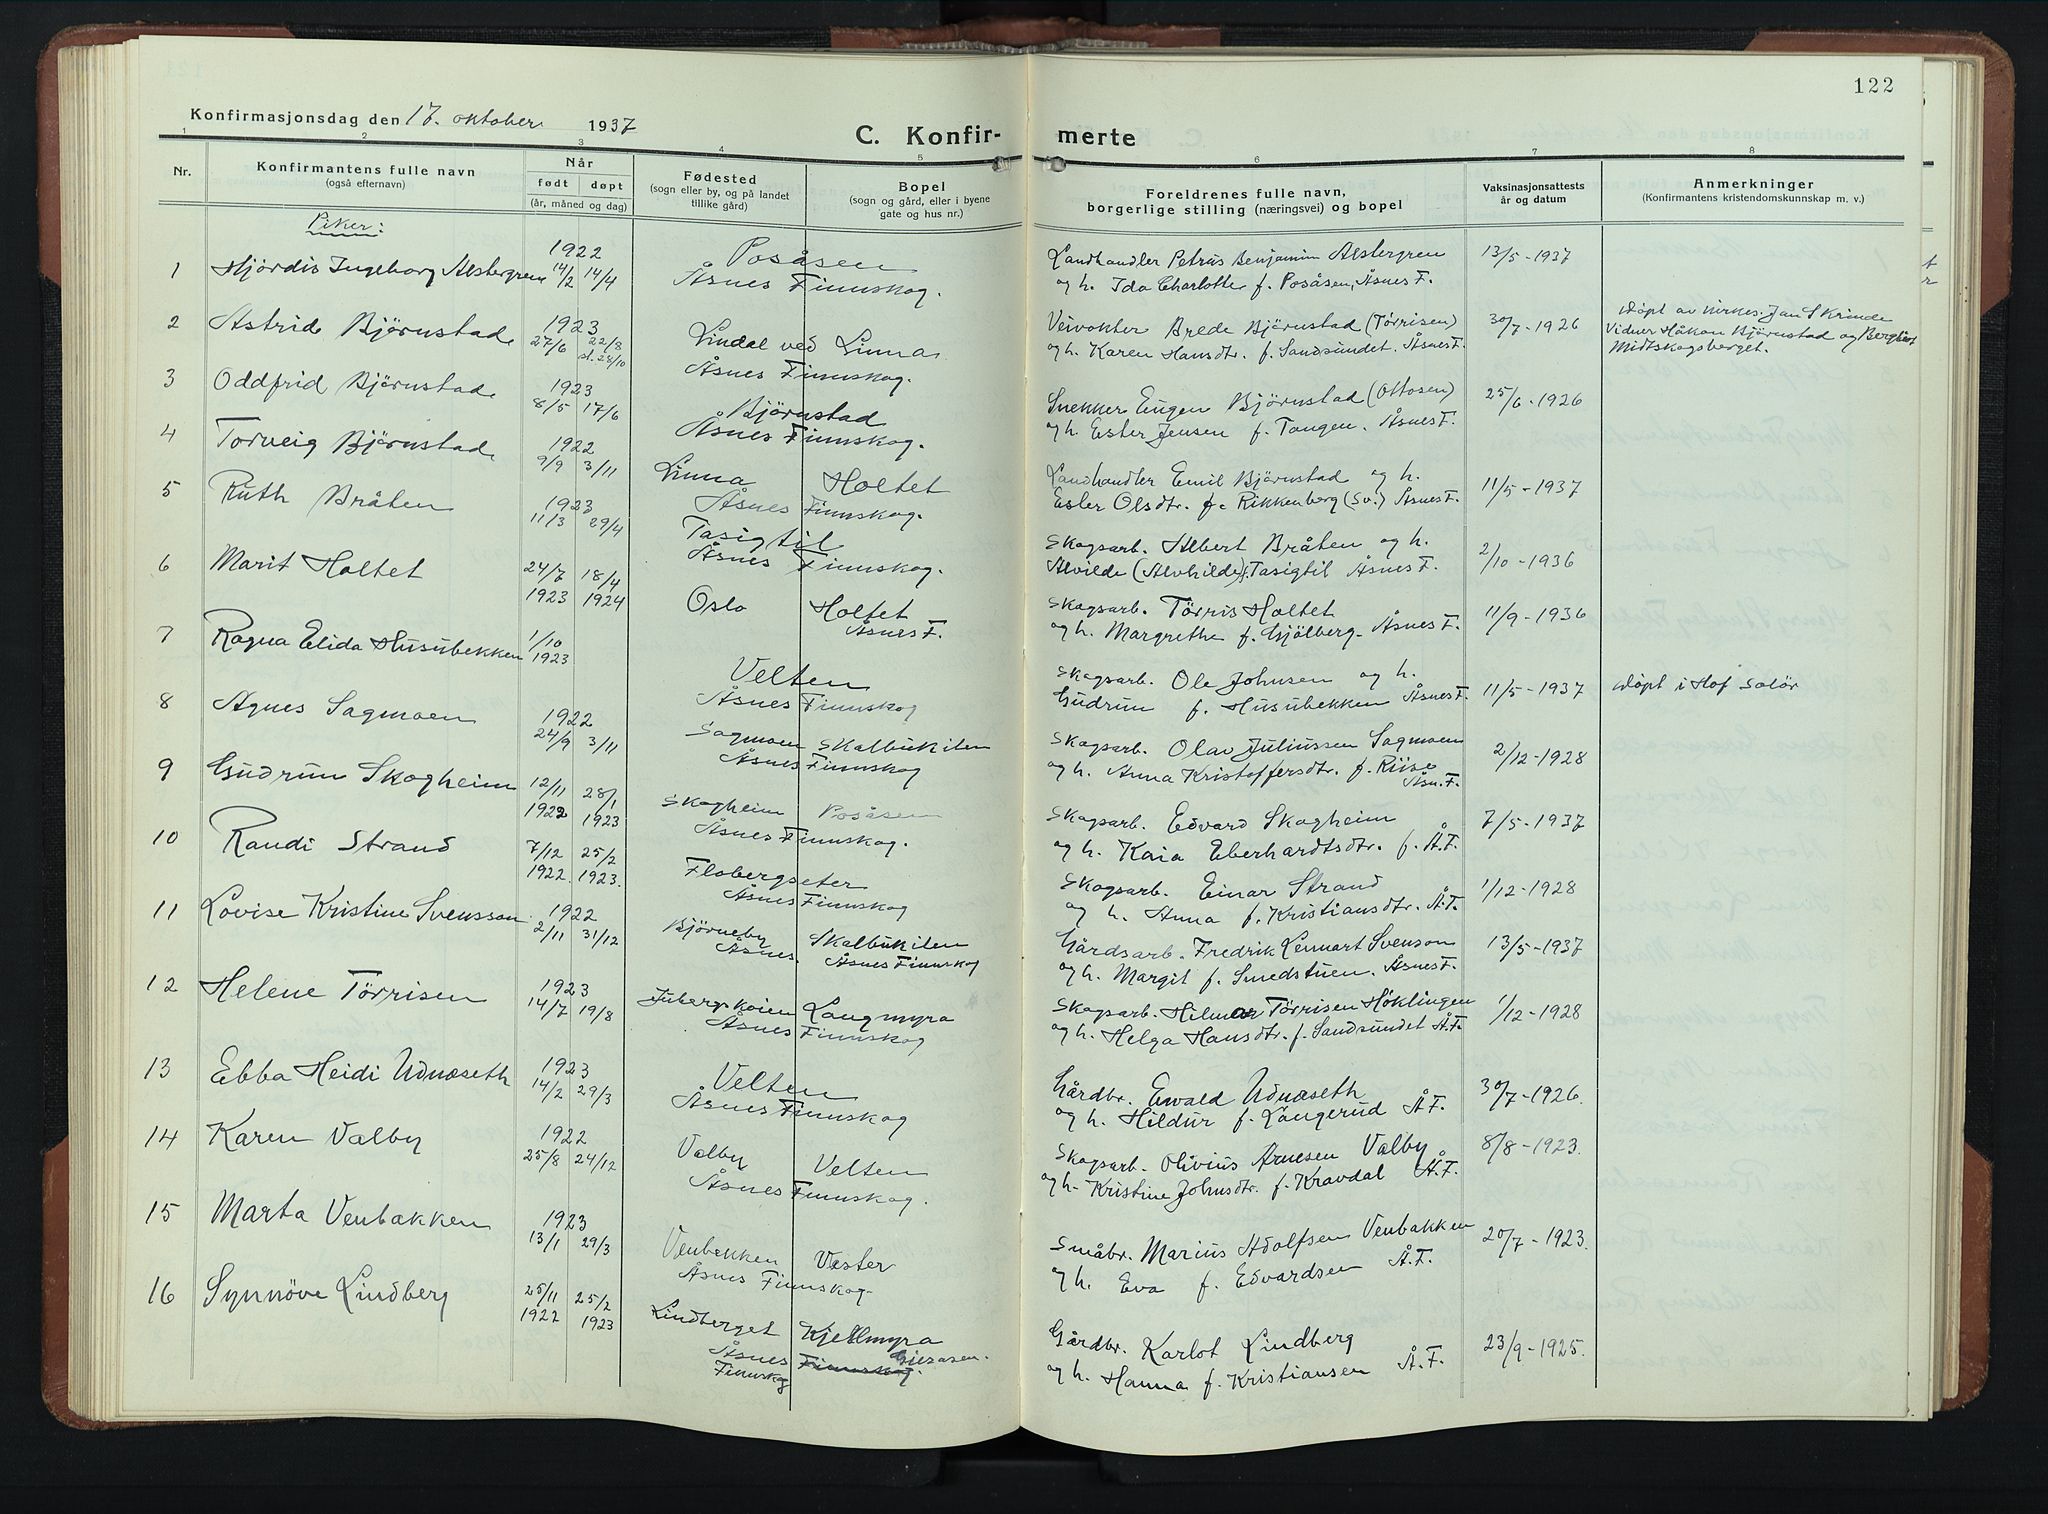 122
Konfirmasjonsdag den 17. oktober 1937
C. Konfir- merte
1 2 3 4 5 6 7 8
Nr.
Konfirmantens fulle navn
(også efternavn)
Når
født døpt
(år, måned og dag)
Fødested
(sogn eller by, og på landet
tillike gård)
Bopel
(sogn og gård, eller i byene
gate og hus nr.)
Foreldrenes fulle navn,
borgerlige stilling (næringsvei) og bopel
Vaksinasjonsattests
år og datum
Anmerkninger
(Konfirmantens kristendomskunnskap m. v.)
Piker:
1 Hjördis Ingeborg Alstergren 1922 14/2 14/4 Posåsen
Åsnes Finnskog.
Landhandler Petrus Benjamin Alstergren 13/5-1937
og h. Ida Charlotte f. Posåsen, Åsnes F.
2 Astrid Björnstad 1923 27/6 22/8 st. 28/10 Lindal ved Linna
Åsnes Finnskog.
Veivokter Brede Björnstad (Törrisen) 30/7-1926
og h. Karen Hansdtr. f. Sandsundet. Åsnes F.
døpt av kirkes. Jan Skrinde
Vidner Håkon Björnstad og Bergljot
Midtskogsberget.
3 Oddfrid Björnstad 1923 8/5 17/6 Björnstad
Åsnes Finnskog.
Snekker Eugen Björnstad (Ottosen) 25/6-1926
og h. Ester Jensen f. Tangen. Åsnes F.
4 Torveig Björnstad 1922 9/9 3/11 Linna Holtet
Åsnes Finnskog.
Landhandler Emil Björnstad og h. 11/5-1937
Ester Olsdtr. f. Rikkenberg (Sv.) Åsnes F.
5 Ruth Bråten 1923 11/3 29/4 Tasigtil
Åsnes Finnskog.
Skogsarb. Albert Bråten og h. 2/10-1936
Alvilde (Alvhilde) f. Tasigtil Åsnes F.
6 Marit Holtet 24/7 1923 18/4 1924 Oslo Holtet
Åsnes F.
Skogsarb. Törris Holtet 11/9-1936
og h. Margrethe f. Gjölberg. Åsnes F.
7 Ragna Elida Husubekken 1/10 1923 Velten
Åsnes Finnskog
Skogsarb. Ole Johnsen og h. 11/5-1937 døpt i Hof Solör
Gudrun f. Husubekken Åsnes F.
8 Agnes Sagmoen 1922 24/9 3/11 Sagmoen Skalbukilen
Åsnes Finnskog
Skogsarb. Olav Juliussen Sagmoen 2/12-1928
og h. Anna Kristoffersdtr. f. Riise
Åsn. F.
9 Gudrun Skogheim 12/11 1922 28/1 1923 Skogheim Posåsen
Åsnes Finnskog.
Skogsarb. Edvard Skogheim 7/5-1937
og h. Kaia Eberhardtsdtr. f. Å.F.
10 Randi Strand 7/12 1922. 25/2 1923. Flobergseter
Åsnes Finnskog
Skogsarb. Einar Strand 1/12-1928
og h. Anna f. Kristiansdtr. Å.F.
11 Lovise Kristine Svensson 1922 2/11 31/12 Björneby Skalbukilen
Åsnes. Åsnes Finnskog
Gårdsarb. Fredrik Lennart Svenson 13/5-1937
og h. Margit f. Smedstuen. Åsnes F.
12 Helene Törrisen 1923 14/7 19/8 Langmyra
Åsnes Finnskog
Skogsarb. Hilmar Törrisen Höklingen 1/12-1928
og h. Helga Hansdtr. f. Sandsundet Å.F.
13 Ebba Heidi Udnæseth 1923 14/2 29/3 Velten
Åsnes Finnskog
Gårdbr. Ewald Udnæseth 30/7-1926.
og h. Hildur f. Langerud Å.F.
14 Karen Valby 1922 25/8 24/12 Valby Velten
Åsnes Finnskog.
Skogsarb. Olivius Arnesen Valby 8/8-1923.
og h. Kristine Johnsdtr. f. Kravdal Å.F.
15 Marta Venbakken 1923 13/1 29/3 Venbekken Vester
Åsnes Finnskog
Småbr. Marius Adolfsen Venbakken 20/7-1923.
og h. Eva f. Edvardsen Å.F.
16 Synnöve Lindberg 25/11 1922 25/2 1923 Lindberget Kjellmyra
Åsnes Finnskog Finnskog. Gjesåsen.
Gårdbr. Karlot Lindberg 23/9-1925.
og h. Hanna f. Kristiansen Å.F.